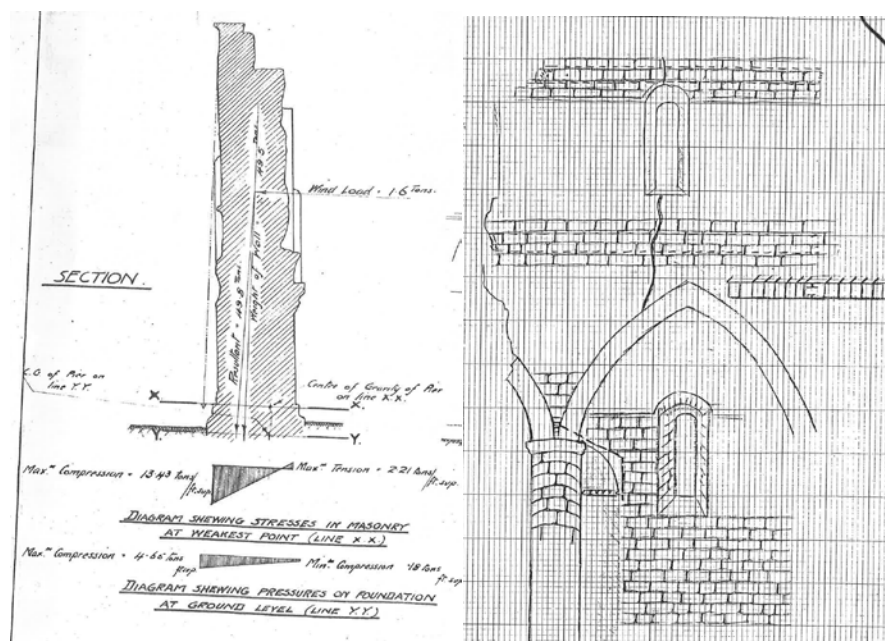 49.5 Tons
Wind Load = 1.6 Tons.
Weight of Wall =
Resultant = 49.8 Tons
SECTION.
C.G of Pier on
line Y.Y.
Centre of Gravity of Pier
on line X.X.
X.
X.
Y.
Y.
Max.m Compression = 13.43 Tons/
ft.sup.
Max.m Tension = 2.21 Tons/
ft.sup.
DIAGRAM SHEWING STRESSES IN MASONRY
AT WEAKEST POINT (LINE X.X.)
Max.m Compression = 4.65 Tons
ft.sup.
Min.m Compression .18 Tons
ft.sup.
DIAGRAM SHEWING PRESSURES ON FOUNDATION
AT GROUND LEVEL (LINE Y.Y.)